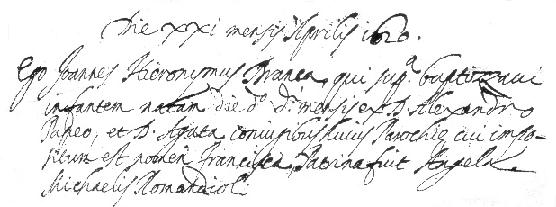 Die XXI mensis Aprilis 1620.
Ego Joannes Hieronymus Branca, qui supª baptizaui
infantem natam die dº dⁱ mensis ex D. Alexandro
et D. Agata coniugibus huius Parochię cui impo-
situm est nomen Francisca, Patrina fuit Angela
Michaelis